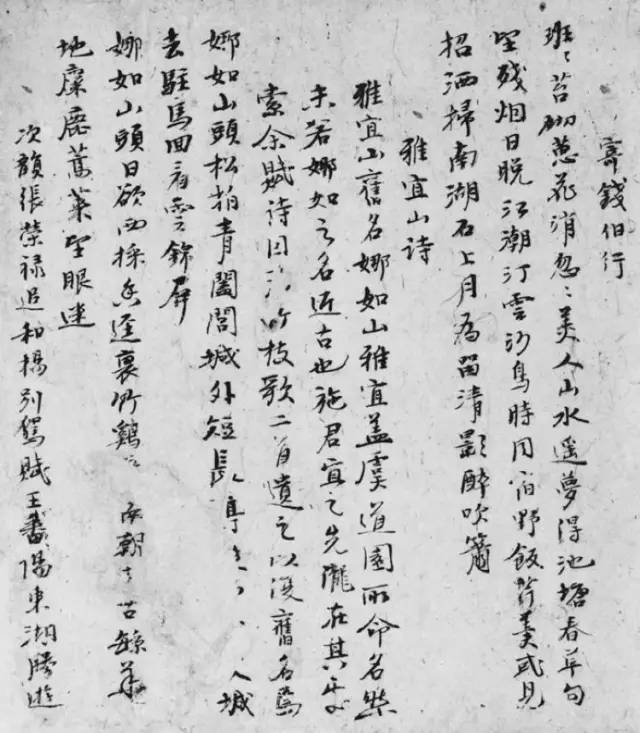 寄錢伯行
班〻苔砌蔥花消忽〻美人山水遥夢得池塘春草句
望殘烟日晚江潮汀雲沙鳥時同宿野飯芹羹或見
招洒掃南湖石上月為留清影醉吹簫
雅宜山詩
雅宜山舊名娜如山雅宜蓋虞道園所命名然
未若娜如之名近古也施君宜之先隴在其
索余賦詩因竹枝歌二首遺之以復舊名焉
娜如山頭松柏青闔閭城外短長亭入城
去駐馬回看雲錦屏
娜如山頭日欲西採香逕裏竹雞朝古
地麋鹿蒿萊望眼迷
次韻張榮祿追和楊別駕賦王番陽東湖勝遊